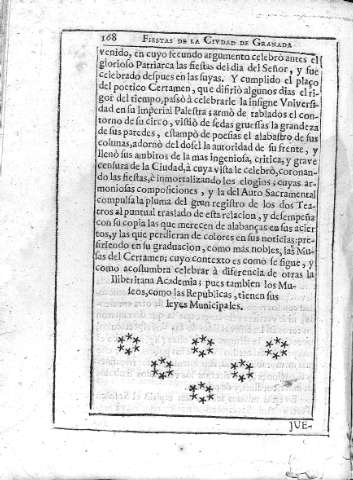 168 FIESTAS DE LA CIVDAD DE GRANADA
venido, en cuyo fecundo argumento celebrò antes el
glorioso Patriarca las fiestas del dia del Señor, y fue
celebrado despues en las suyas. Y cumplido el plaço
del poetico Certamen, que difiriò algunos dias el ri-
gor del tiempo, passò à celebrarle la insigne Vniversi-
dad en su Imperial Palestra; armò de tablados el con-
torno de su circo, vistiò de sedas gruessas la grandeza
de sus paredes, estampò de poesias el alabastro de sus
colunas, adornò del dosel la autoridad de su frente, y
llenò sus ambitos de la mas ingeniosa, critica, y grave
censura de la Ciudad, à cuya vista le celebrò, coronan-
do las fiestas, è inmortalizando los elogios; cuyas ar-
moniosas composiciones, y la del Auto Sacramental
compulsa la pluma del gran registro de los dos Tea-
tros al puntual traslado de esta relacion, y desempeña
con su copia las que merecen de alabanças en sus acier-
tos, y las que perdieran de colores en sus noticias: pre-
firiendo en su graduacion, como mas nobles, las Mu-
sas del Certamen; cuyo contexto es como se sigue, y
como acostumbra celebrar à diferencia de otras la
Illiberitana Academia; pues tambien los Mu-
seos, como las Republicas, tienen sus
leyes Municipales.
JVE-